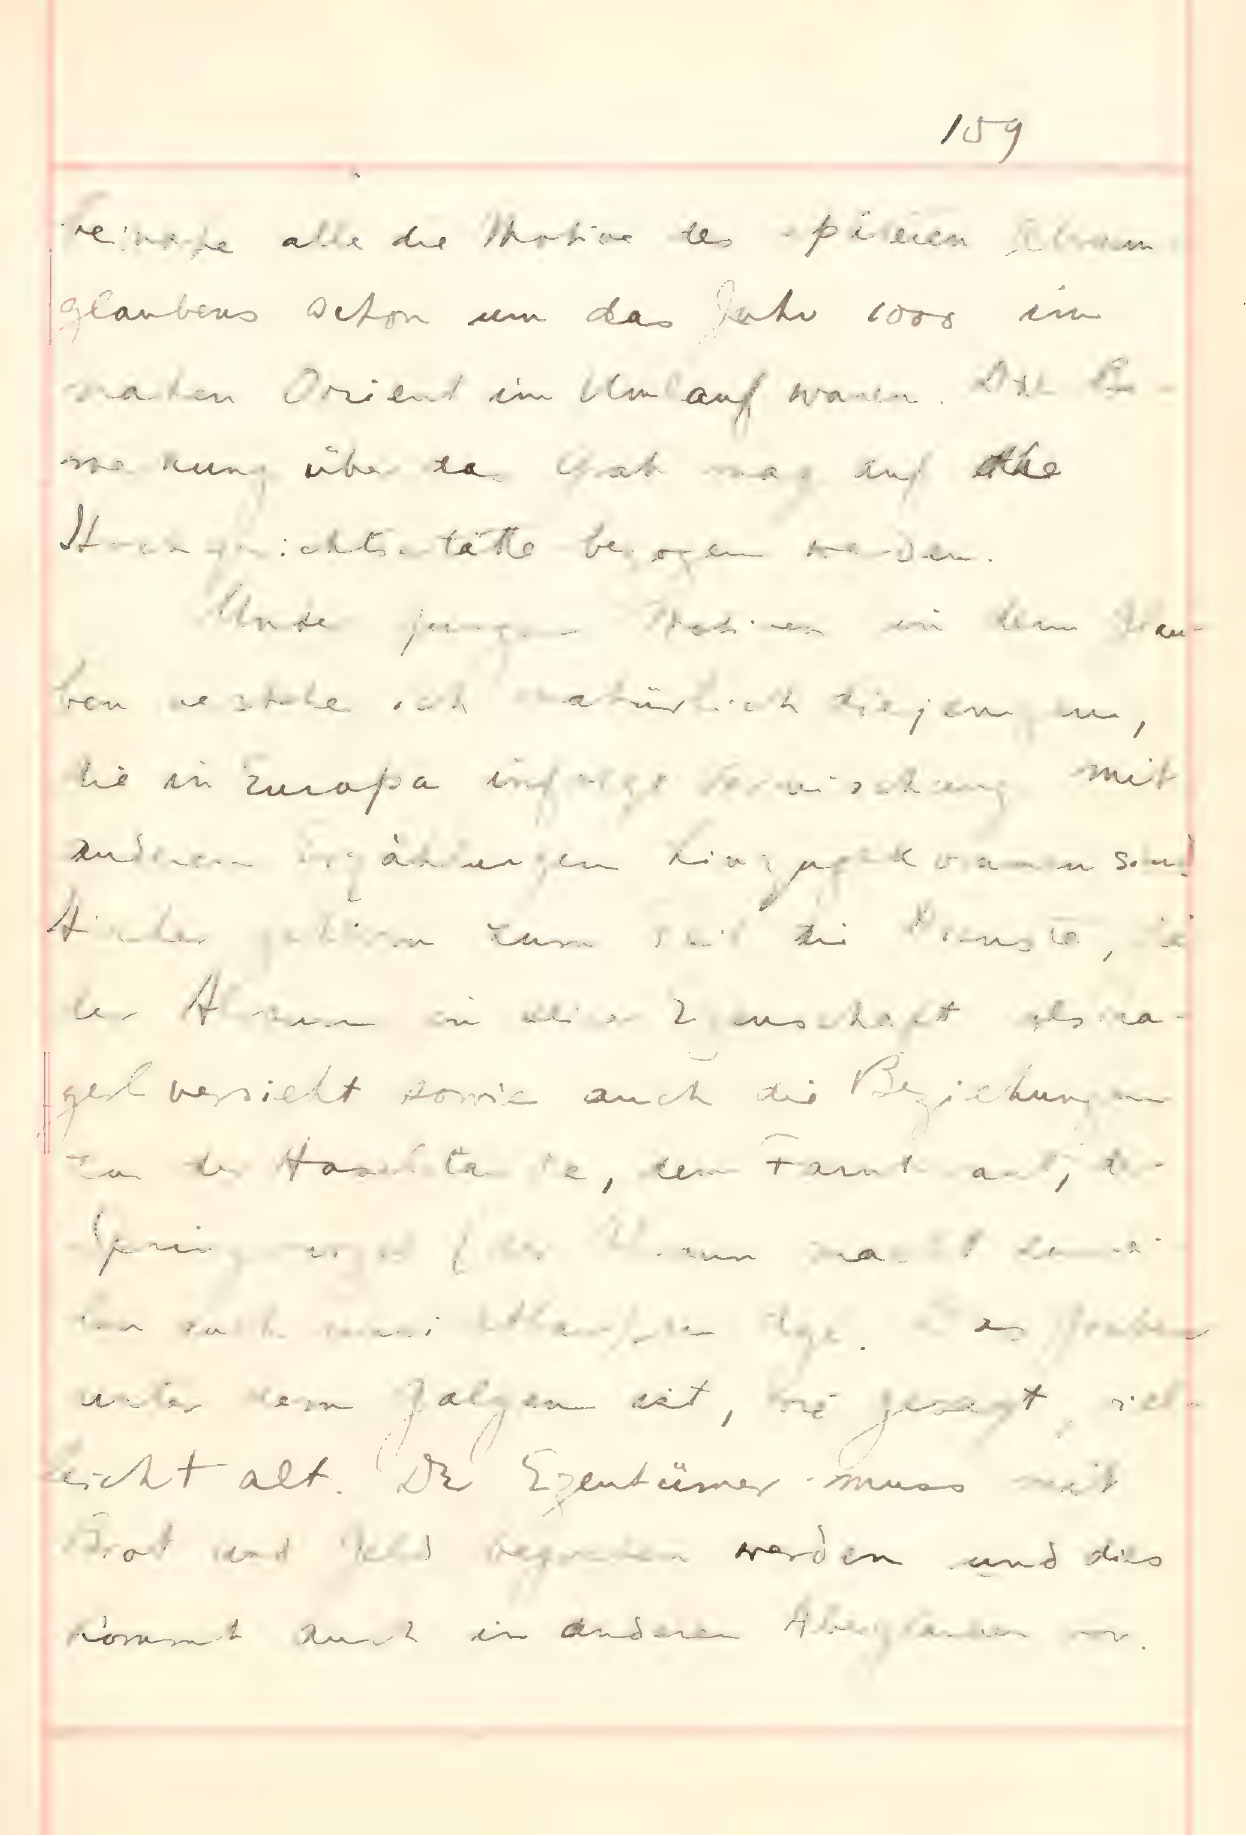 159
beinahe alle die Motive des späteren Alraun-
glaubens schon um das Jahr 1000 im
nahen Orient im Umlauf waren. Die Be-
merkung über das Grab mag auf die
Hochgerichtsstätte bezogen werden.
Unter jungen Motiven in dem Glau-
ben verstehe ich natürlich diejenigen,
die in Europa infolge Vermischung mit
anderen Erzählungen hinzugekommen sind
Hierher gehören zum Teil die Dienste, die
der Alraun in seiner Eigenschaft als
versieht sowie auch die Beziehungen
zu der Haselstaude, dem Farnkraut, der
Springwurzel (der Alraun macht
auch dgl. Das Graben
unter dem Galgen ist, wie gesagt, viel-
leicht alt. Der Egentümer muss mit
Brot und Geld werden und dies
kommt auch in anderen Aberglauben vor.